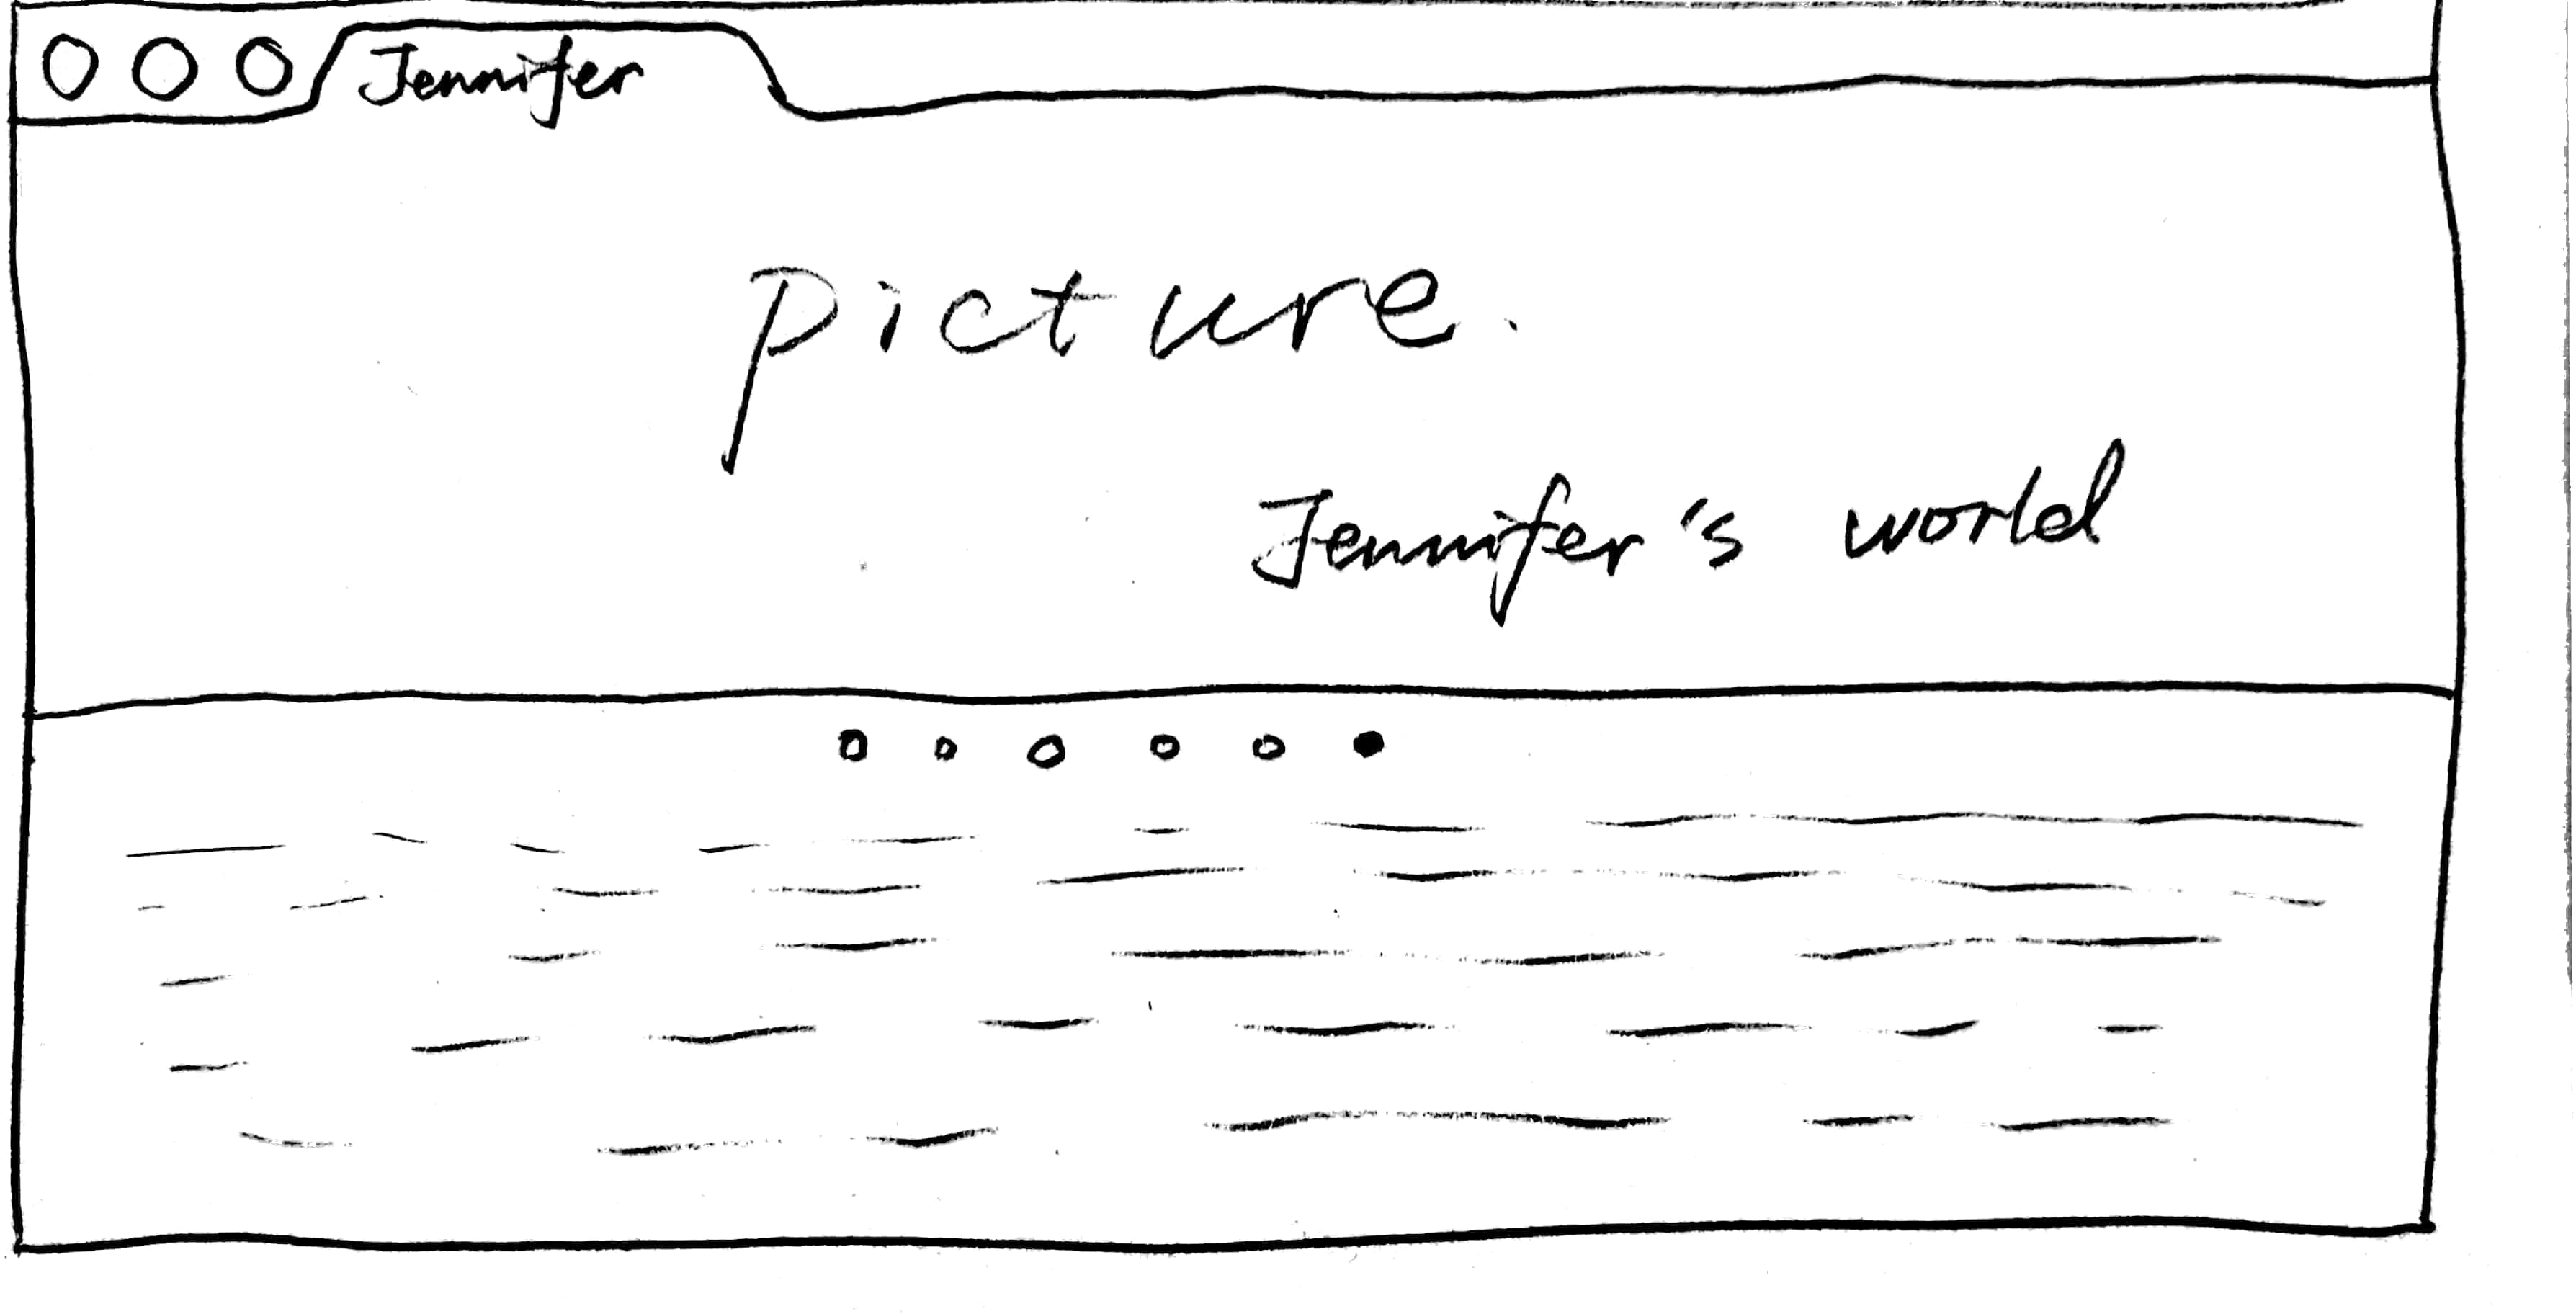 Jennifer
picture.
Jennifer's world